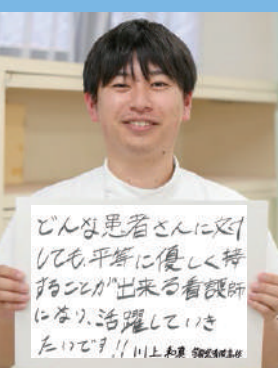 どんな患者さんに対
しても、平等に優しく接
することが出来る看護師
になり、活躍していき
たいです!! 川上